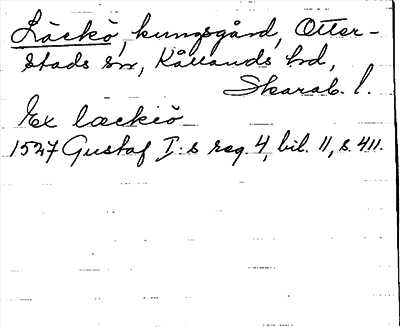 Läckö, kungsgård, Otter-
stads sn, Kållands hd,
Skarab. l.
Ex laeckiö
1527 Gustaf I:s reg. 4, bil. 11, s. 411.